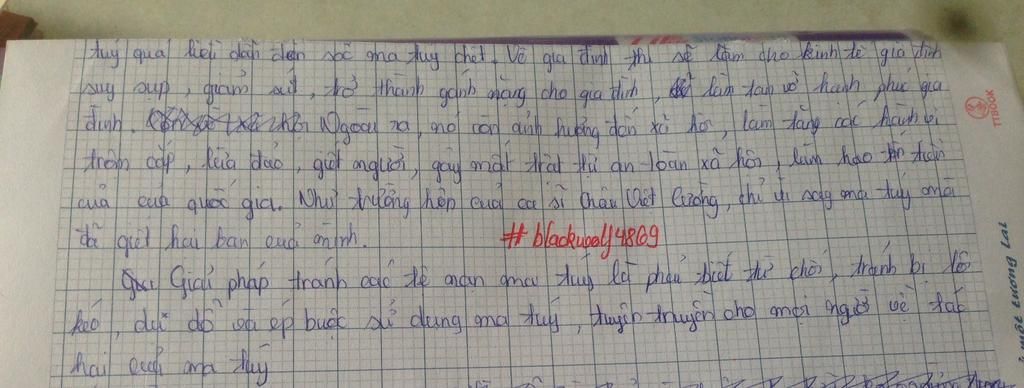 tuý quá liều dẫn đến sốc ma tuý chết. Về gia đình thì sẽ làm cho kinh tế gia đình
suy sụp, giảm sút, trở thành gánh nặng cho gia đình, làm tan vỡ hạnh phúc gia
đình. Ngoài ra, nó còn ảnh hưởng đến xã hội, làm tăng các hành vi
trộm cắp, lừa đảo, giết người, gây mất trật tự an toàn xã hội, làm hao
của của quốc gia. Như trường hợp của ca sĩ Châu Việt Cường, chỉ vì say ma tuý mà
đã giết hai bạn của mình.
Giải pháp tránh các tệ nạn ma tuý là phải biết từ chối, tránh bị lôi
kéo, dụ dỗ và ép buộc sử dụng ma tuý, tuyên truyền cho mọi người về tác
hại của ma tuý
TIBOOK